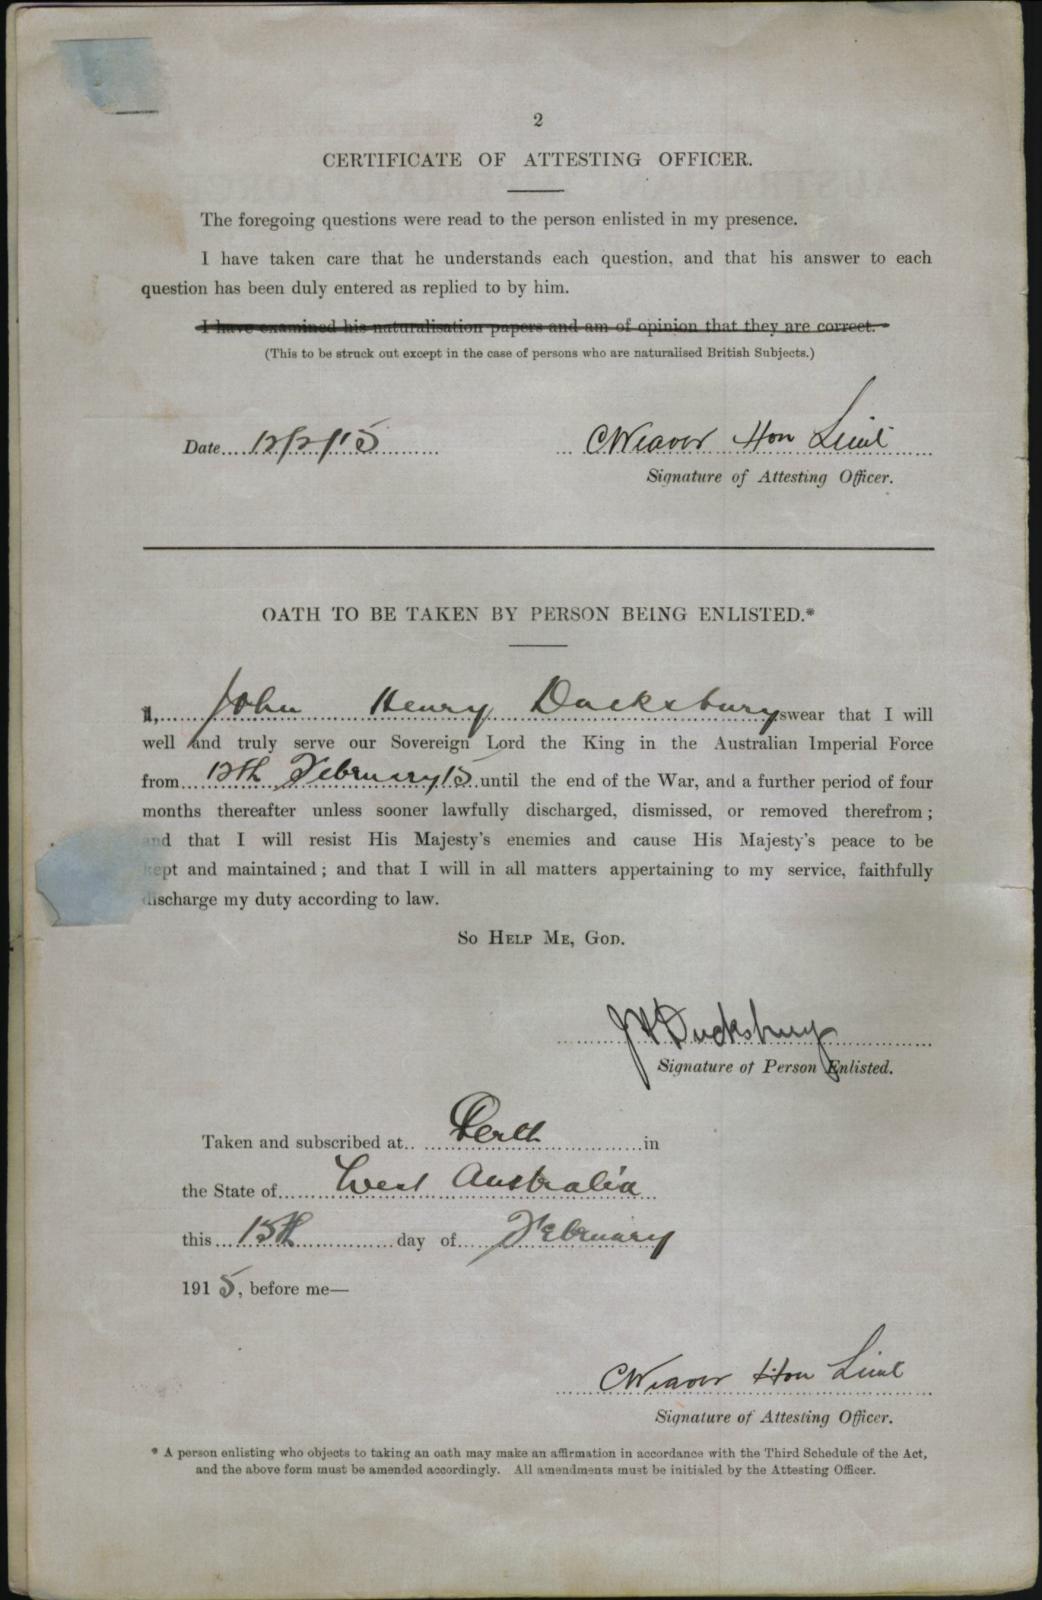 2
CERTIFICATE OF ATTESTING OFFICER.
The foregoing questions were read to the person enlisted in my presence.
I have taken care that he understands each question, and that his answer to each
question has been duly entered as replied to by him.
I have examined his naturalisation papers and am of opinion that they are correct.
(This to be struck out except in the case of persons who are naturalised British Subjects.)
Date 12/2/15 CWeaver Hon Lieut
Signature of Attesting Officer.
OATH TO BE TAKEN BY PERSON BEING ENLISTED.*
I, John Henry Ducksbury swear that I will
well and truly serve our Sovereign Lord the King in the Australian Imperial Force
from 12th February 15 until the end of the War, and a further period of four
months thereafter unless sooner lawfully discharged, dismissed, or removed therefrom;
and that I will resist His Majesty's enemies and cause His Majesty's peace to be
kept and maintained; and that I will in all matters appertaining to my service, faithfully
discharge my duty according to law.
SO HELP ME, GOD.
JH Ducksbury
Signature of Person Enlisted.
Taken and subscribed at Perth in
the State of West Australia
this 15th day of February
1915, before me—
CWeaver Hon Lieut
Signature of Attesting Officer.
* A person enlisting who objects to taking an oath may make an affirmation in accordance with the Third Schedule of the Act,
and the above form must be amended accordingly. All amendments must be initialed by the Attesting Officer.